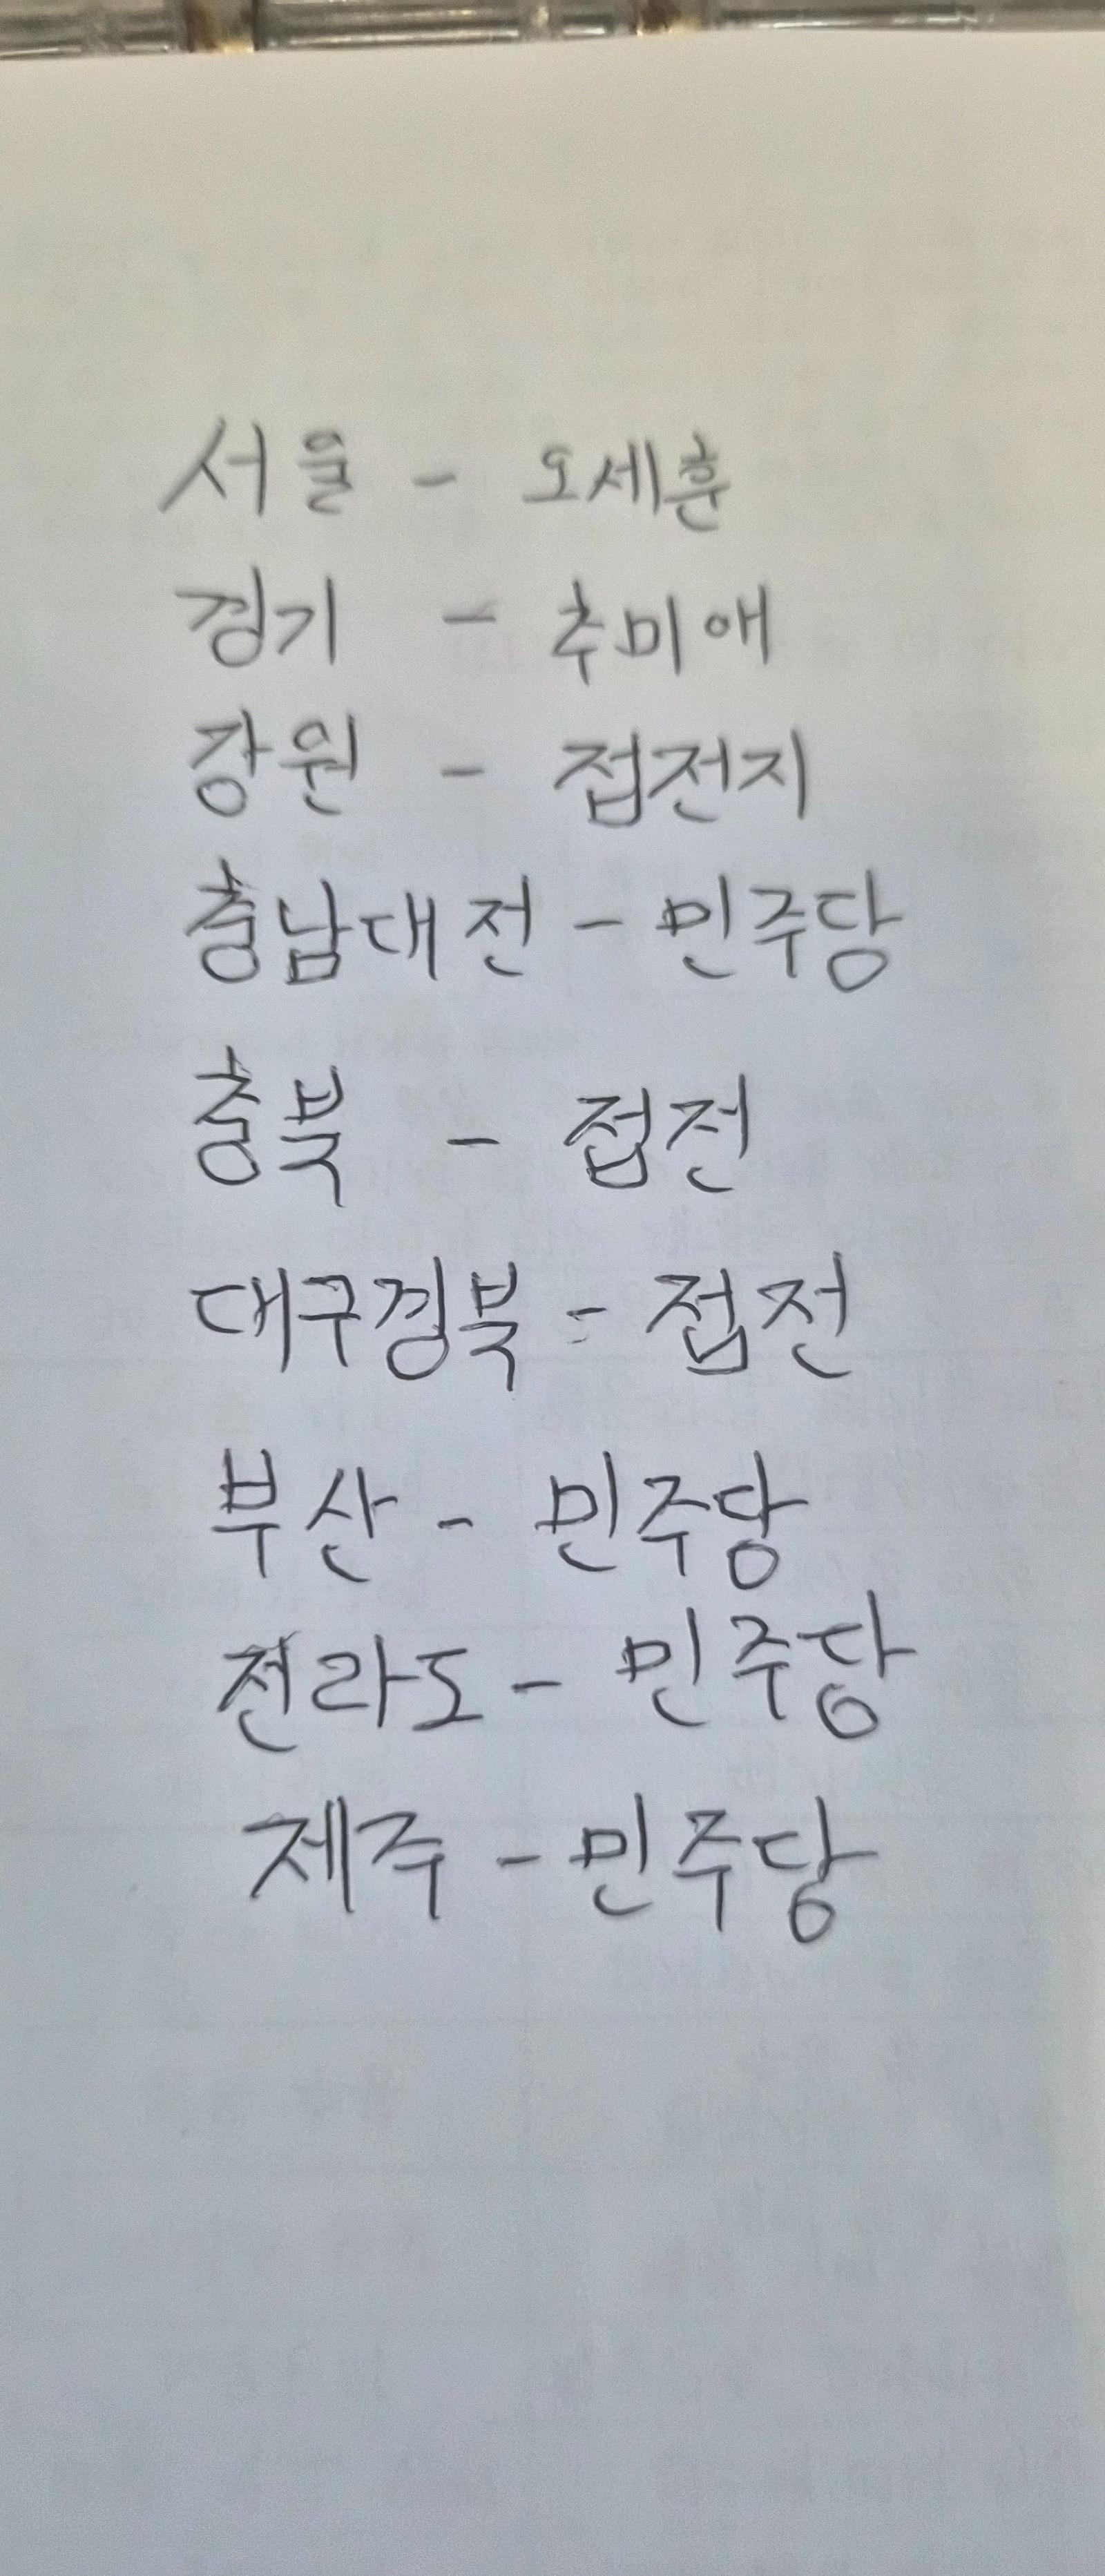 서울 - 오세훈
경기 - 추미애
강원 - 접전지
충남대전 - 민주당
충북 - 접전
대구경북 - 접전
부산 - 민주당
전라도 - 민주당
제주 - 민주당